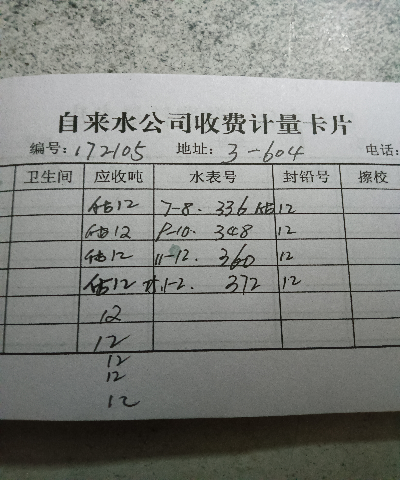 自来水公司收费计量卡片
编号: 172105 地址: 3-604 电话:
卫生间 应收吨 水表号 封铅号 擦校
估12 7-8. 336 估12
估12 9-10. 348 12
估12 11-12. 360 12
估12 1-2. 372 12
12
12
12
12
12